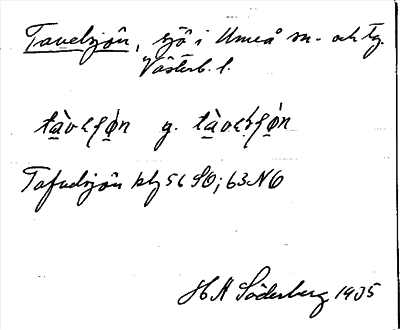 Tavelsjön, sjö i Umeå sn. och tg.
Västerb. l.
tàvelʃö̀n g. tàvelʃö̀n
Tafvelsjön blj 56 SO; 63 NO
H Söderberg 1935